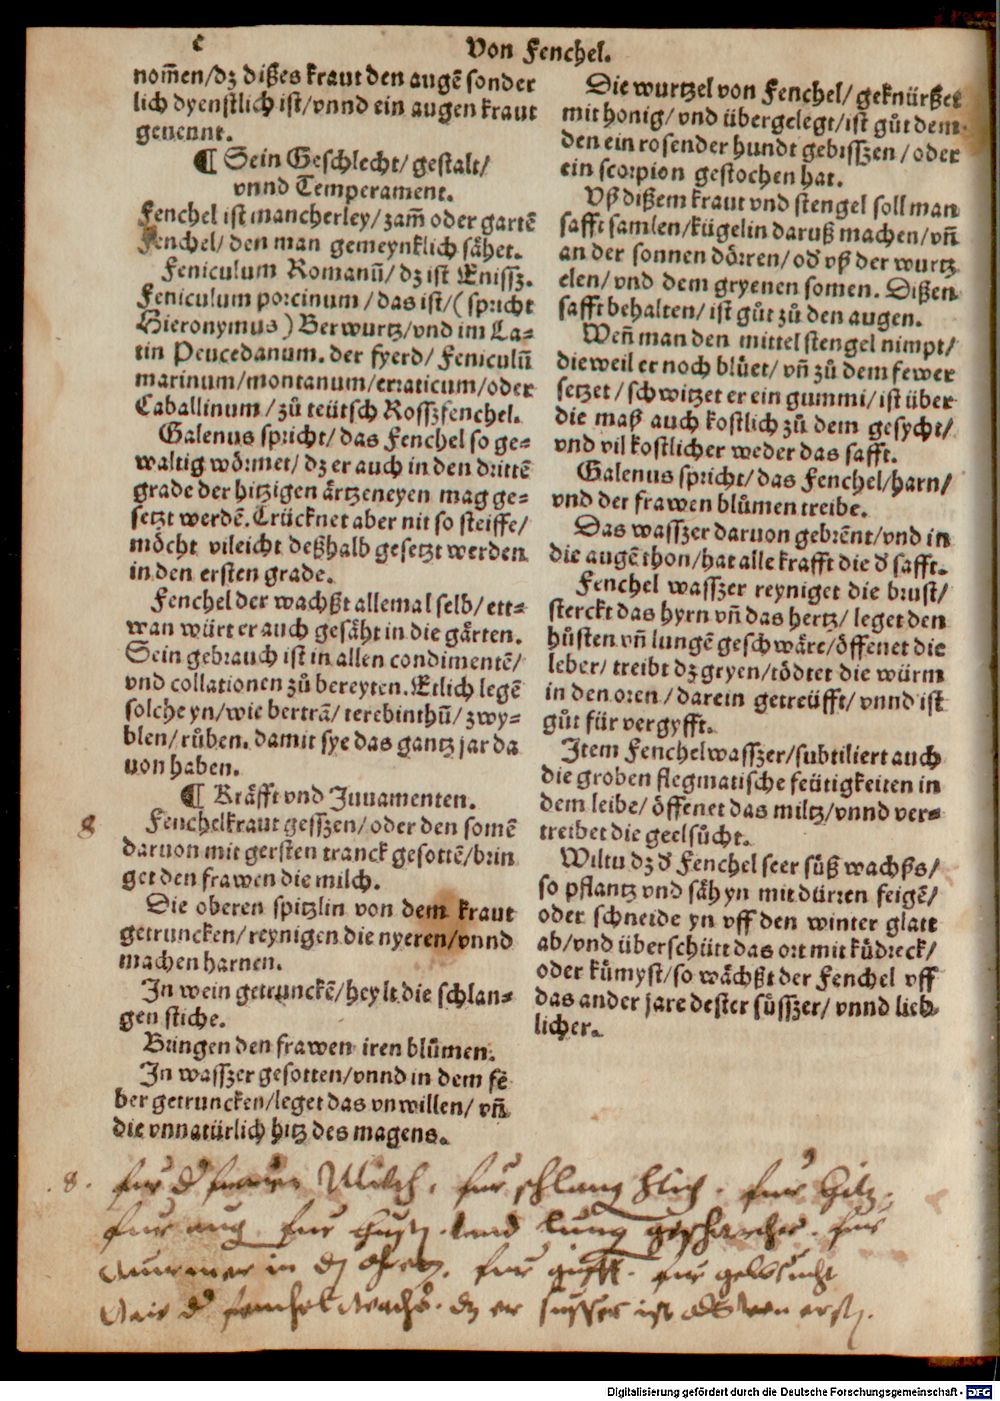 Von Fenchel.
nom̃en/dz dißes kraut den augẽ sonder
lich dyenstlich ist/vnnd ein augen kraut
genennt.
¶ Sein Geschlecht/ gestalt/
vnnd Temperament.
Fenchel ist mancherley/zam̃ oder gartẽ
Fenchel/ den man gemeynklich sähet.
Feniculum Romanũ/ dz ist Enissz.
Feniculum porcinum /das ist/( spricht
Hieronymus ) Berwurtz/vnd im La-
tin Peucedanum. der fyerd/ Feniculũ
marinum/montanum/erraticum/oder
Caballinum /zů teütsch Rosszfenchel.
Galenus spricht/das Fenchel so ge-
waltig wörmet/ dz er auch in den drittẽ
grade der hitzigen ärtzeneyen mag ge-
setzt werdẽ. Trücknet aber nit so steiffe/
möcht vileicht deßhalb gesetzt werden
in den ersten grade.
Fenchel der wachßt allemal selb/ ett-
wan würt er auch gesäht in die gärten.
Sein gebrauch ist in allen condimentẽ/
vnd collationen zů bereyten. Etlich legẽ
solche yn/wie bertrã/ terebinthũ/ zwy-
blen/růben. damit sye das gantz jar da
uon haben.
¶ Kräfft vnd Juuamenten.
8
Fenchelkraut gesszen/oder den somẽ
daruon mit gersten tranck gesottẽ/brin
get den frawen die milch.
Die oberen spitzlin von dem kraut
getruncken/reynigen die nyeren/vnnd
machen harnen.
In wein getrunckẽ/heylt die schlan-
gen stiche.
Bringen den frawen iren blůmen.
In wasszer gesotten/vnnd in dem fe̅
ber getruncken/leget das vnwillen/ vñ
die vnnatürlich hitz des magens.
Die wurtzel von Fenchel/ geknürßet
mit honig/ vnd übergelegt/ist gůt dem
den ein rosender hundt gebisszen /oder
ein scorpion gestochen hat.
Vß dißem kraut vnd stengel soll man
safft samlen/kügelin daruß machen/vñ
an der sonnen dörren/od̕ vß der wurtz
elen/vnd dem gryenen somen. Dißen
safft behalten/ ist gůt zů den augen.
Weñ man den mittel stengel nimpt/
dieweil er noch blůet/ vñ zů dem fewer
setzet /schwitzet er ein gummi/ist über
die maß auch kostlich zů dem gesycht/
vnd vil kostlicher weder das safft.
Galenus spricht/das Fenchel/harn/
vnd der frawen blůmen treibe.
Das wasszer daruon gebrẽnt/vnd in
die augẽ thon/hat alle krafft die d̕ safft.
Fenchel wasszer reyniget die brust/
sterckt das hyrn vñ das hertz/ leget den
hůsten vñ lungẽ geschwäre/öffenet die
leber/ treibt dz gryen/tödtet die würm
in den oren /darein getreüfft/ vnnd ist
gůt für vergyfft.
Item Fenchelwasszer/subtiliert auch
die groben flegmatische feütigkeiten in
dem leibe/ öffenet das miltz/vnnd ver-
treibet die geelsůcht.
Wiltu dz d̕ Fenchel seer süß wachßs/
so pflantz vnd säh yn mit dürren feigẽ/
oder schneide yn vff den winter glatt
ab/vnd überschütt das ort mit kůdreck/
oder kůmyst/so wächßt der Fenchel vff
das ander jare dester sůsszer/ vnnd lieb
licher.
8. fur d frauen Milch, fur schlang stich. fur hitz.
fur aug. fur husten. und lung geschwer. fur
wurmer in den ohren. fur gifft. fur gelbsucht
wie d fenchel wachs. dz er susser ist
Digitalisierung gefördert durch die Deutsche Forschungsgemeinschaft - DFG